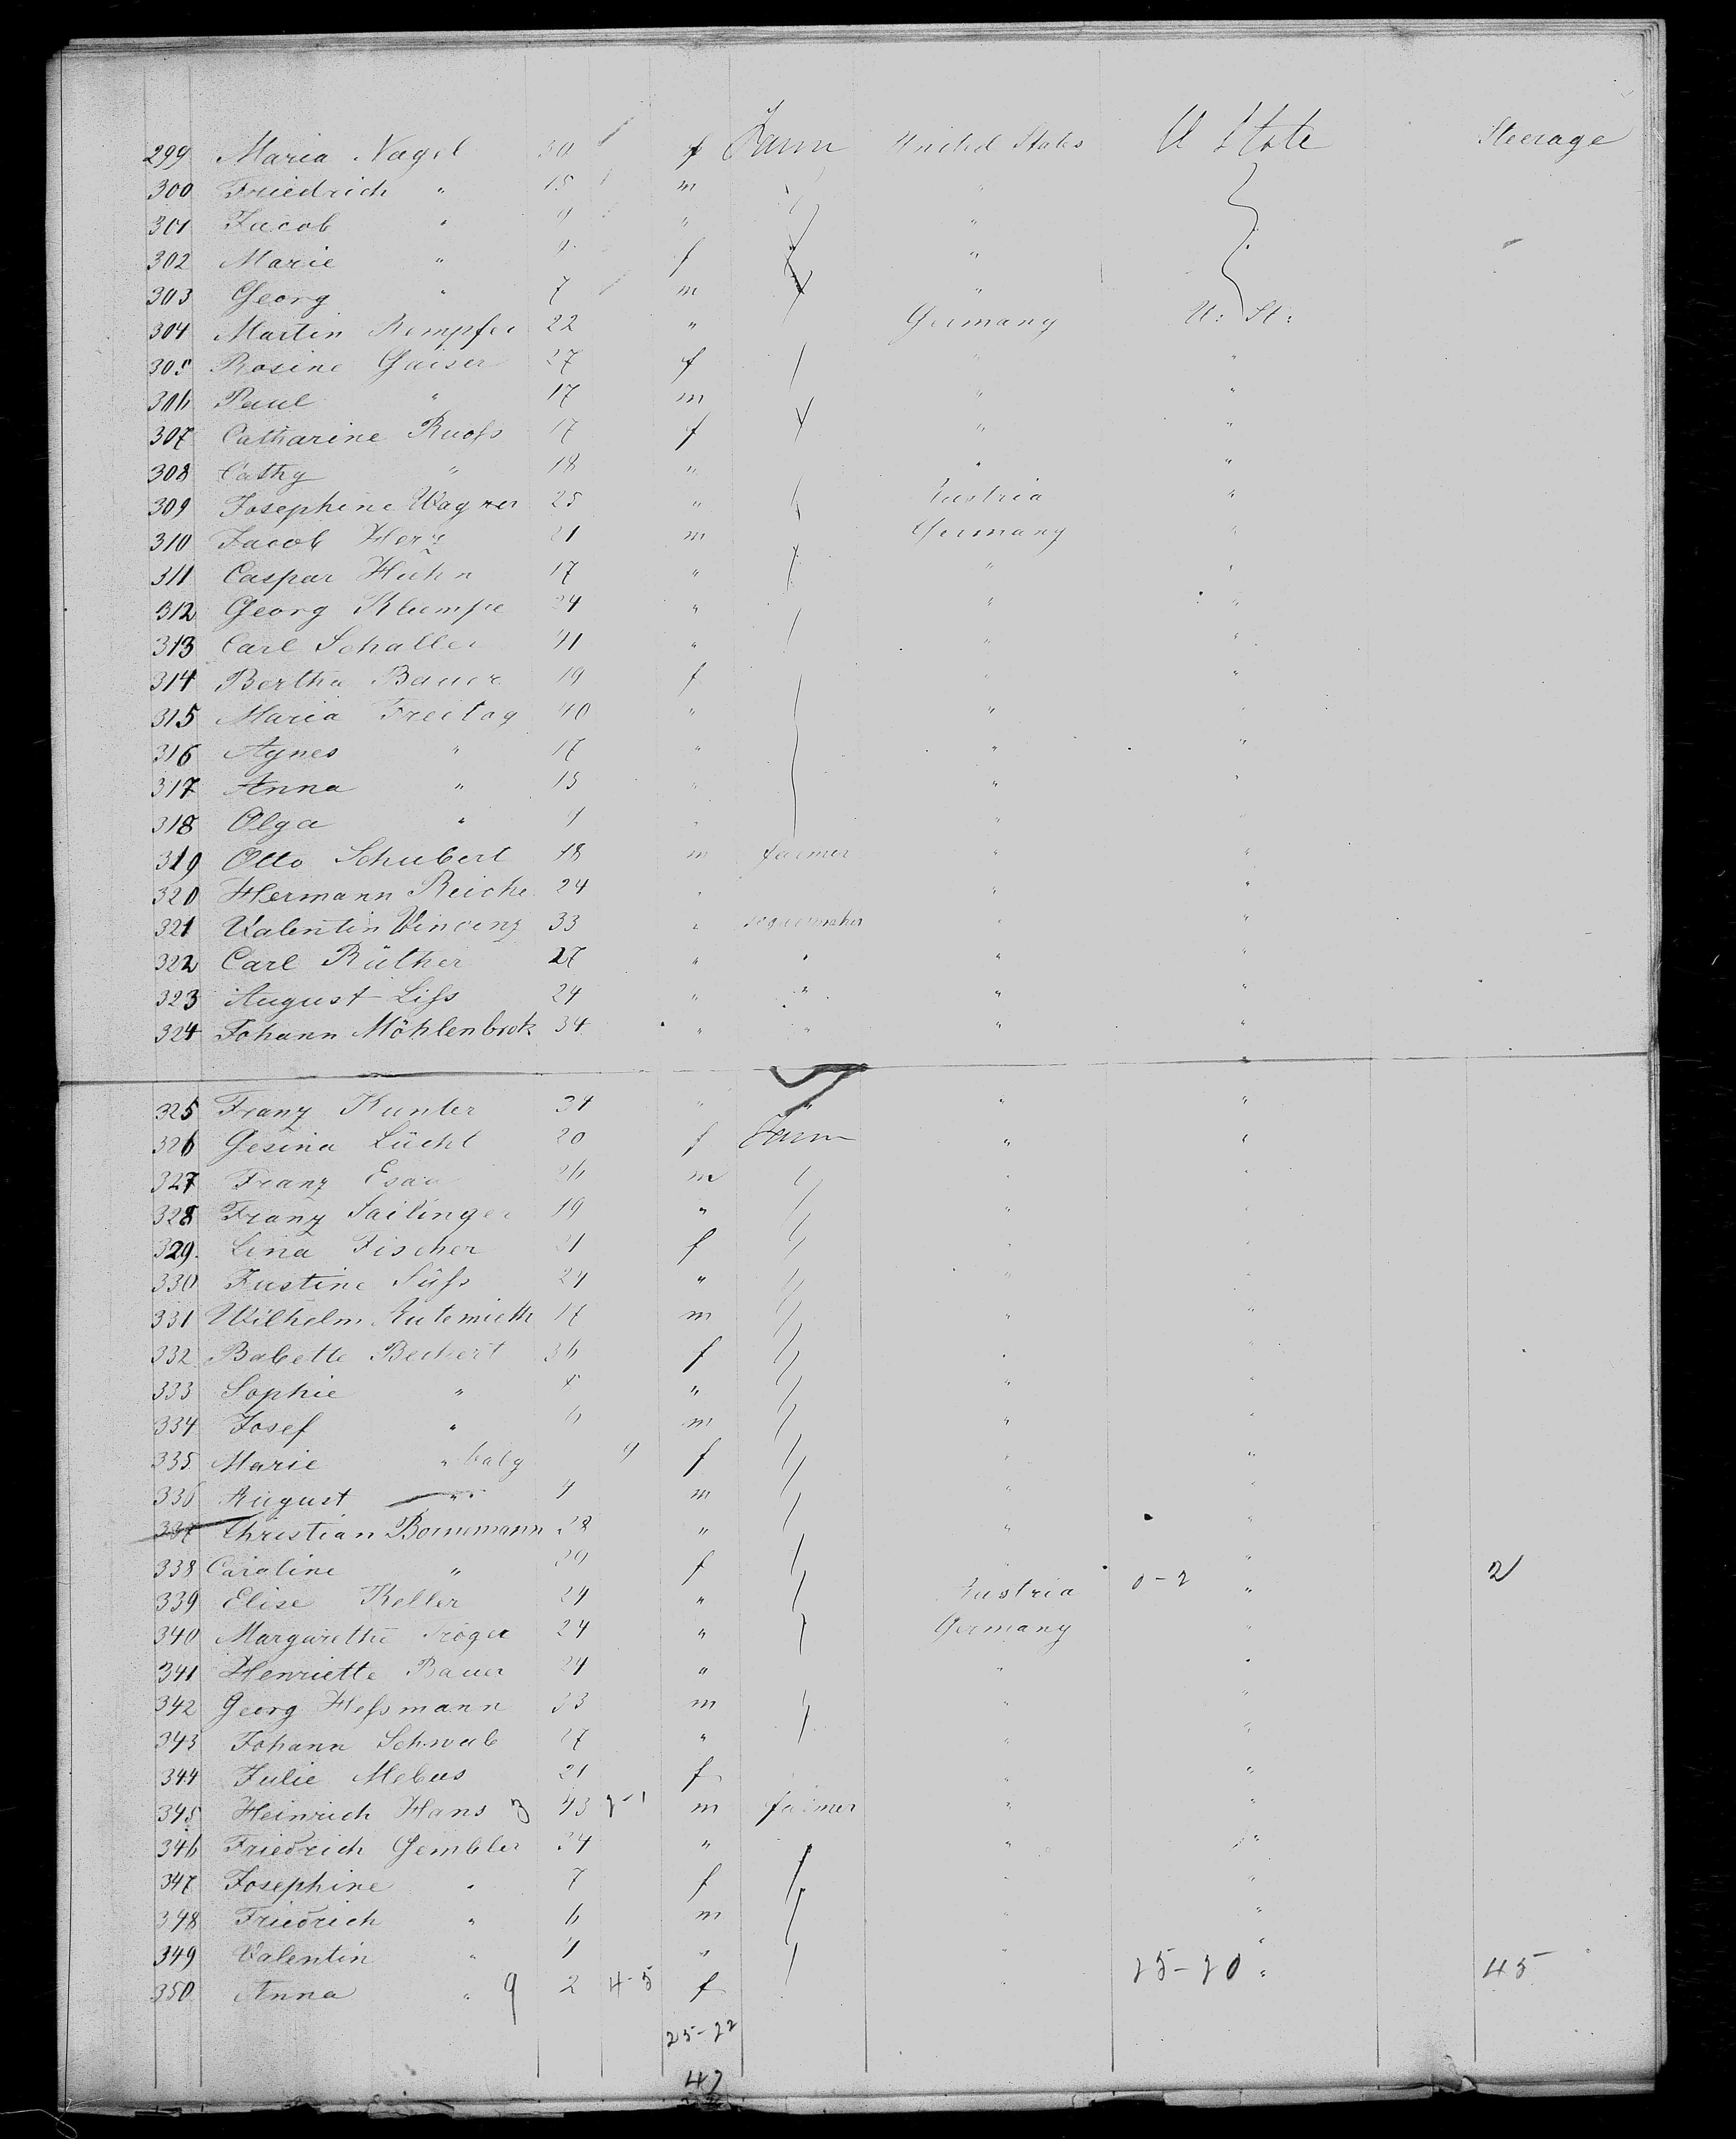 299 Maria Nagel 30 f Farm United States U State Steerage
300 Friedrich " 15 m "
301 Jacob " 9 " "
302 Marie " f "
303 Georg " 7 m "
304 Martin Rempfer 22 " Germany U: St:
305 Rosine Gaiser 27 f " "
306 Paul " 17 m " "
307 Catharine Ruofs 17 f " "
308 Cathy " 18 " " "
309 Josephine Wagner 25 " Austria "
310 Jacob Herz 21 m Germany "
311 Caspar Huhn 17 " " "
312 Georg Klumpe 24 " " "
313 Carl Schaller 41 " " "
314 Bertha Bauer 19 f " "
315 Maria Freitag 40 " " "
316 Agnes " 17 " " "
317 Anna " 15 " " "
318 Olga " 9 " " "
319 Otto Schubert 18 m farmer " "
320 Hermann Reiche 24 " " "
321 Valentin Vincenz 33 " " "
322 Carl Rüther 27 " " " "
323 August Lifs 24 " " " "
324 Johann Möhlenbrok 34 " " " "
325 Franz Kunter 34 " " " "
326 Gesina Lücht 20 f Farm " "
327 Franz Esau 26 m " "
328 Franz Sailinger 19 " " "
329 Lina Fischer 21 f " "
330 Justine Süfs 24 " " "
331 Wilhelm 17 m " "
332 Babette Bechert 36 f " "
333 Sophie " " " "
334 Josef " 6 m " "
335 Marie " baby 9 f " "
336 August " 4 m " "
337 Christian Bornemann 28 " " "
338 Caroline " 29 f " "
339 Elise Keller 24 " Austria 0-2 " 2
340 Margarethe Tröger 24 " Germany "
341 Henriette Bauer 24 " " "
342 Georg Hefsmann 33 m " "
343 Johann Schwab 27 " " "
344 Julie Mebus 21 f " "
345 Heinrich Hans 3 43 m farmer " "
346 Friedrich Gembler 34 " " "
347 Josephine " 7 f " "
348 Friedrich " 6 m " "
349 Valentin " 4 " " "
350 Anna " 9 2 4-5 f " 25-20 " 45
25-22
47